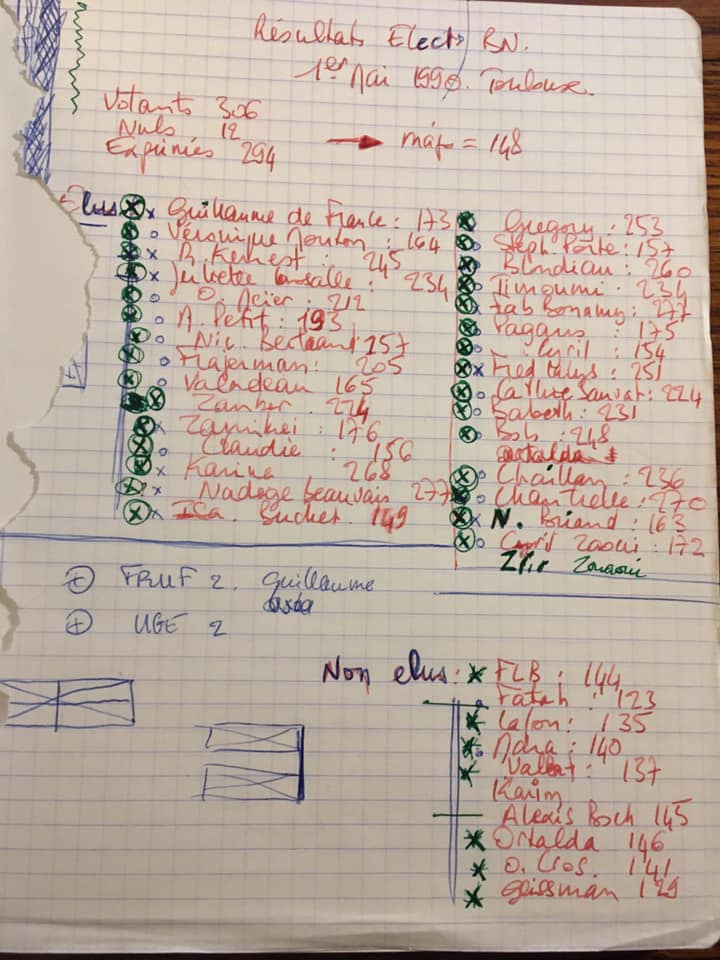 Résultats Elect° BN.
1er Mai 1990. Toulouse.
Votants 306
Nuls 12
Exprimés 294 → maj = 148
Elus
Guillaume de France : 173
Véronique : 164
R. Kernest : 245
Juliette : 234
O. Acier : 212
A. Petit : 193
Nic. Bertrand 157
Frajerman : 205
Valadeau 165
Zamber 224
: 176
Claudie : 156
Karine 268
Nadège Beauvais 277
Isa. Buchet. 149
Gregory : 253
Steph. Porte : 157
Blondiau : 260
Timoumi : 234
Fab Bonamy : 277
Pagans : 175
Cyril : 154
Fred : 251
Cathie Sauvat : 224
Babeth : 231
Bob : 248
Chaillan : 236
Chantrelle : 270
N. Briand : 163
Cyril Zaoui : 172
Zouaoui
+ FRUF 2. Guillaume
+ UGE 2
Non elus :
FLB : 144
Fatah : 123
Lalon : 135
: 140
Vallat : 137
Karim
Alexis Boch 145
Ortalda 146
O. Cros. 141
Geissman 129